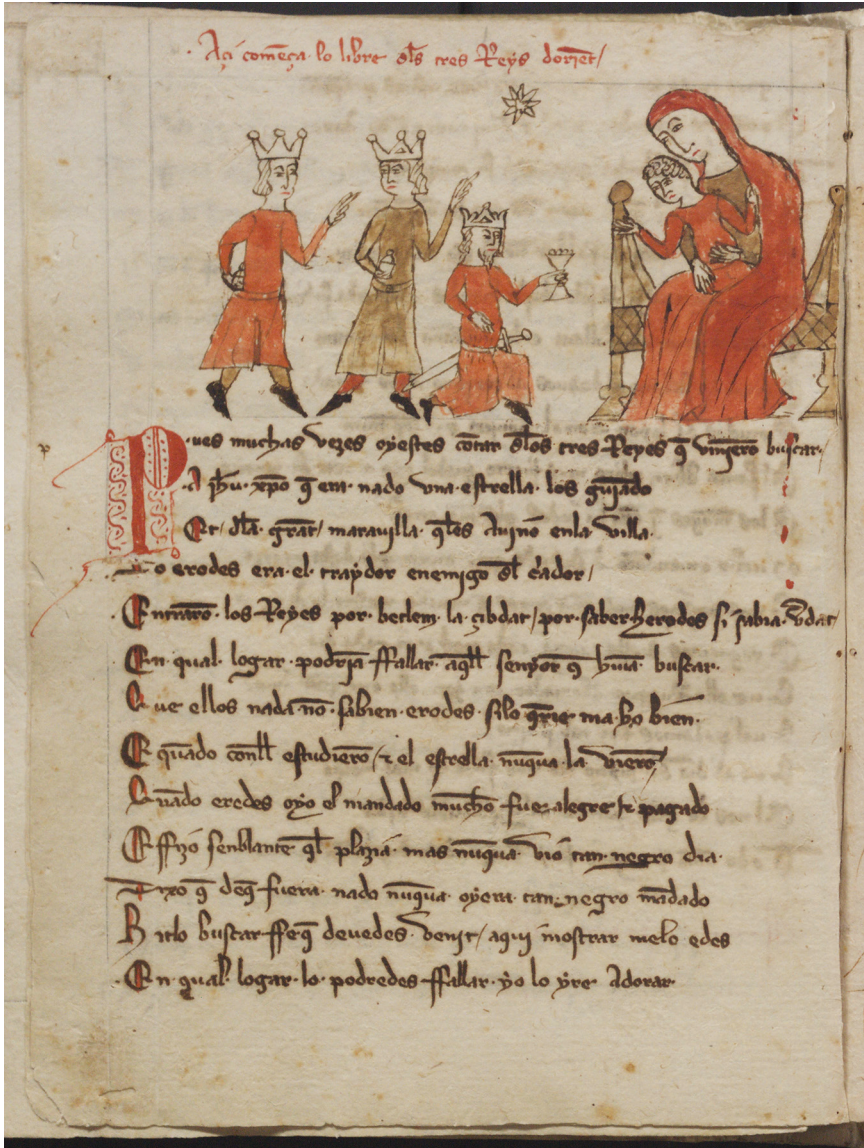 Açi comença lo libre dels tres Reys dorient
Pues muchas vezes oyestes contar delos tres Reyes que vinieron buscar
A ihu xpo que era nado vna estrella los guiando
Et dla grant marauilla qles Auino enla villa
Do erodes era el traydor enemigo del criador
Entraron los Reyes por betlem la çibdat por saber herodes si sabia verdat
En qual logar podrian ffallar aqll senyor que yuan buscar
Que ellos nada non sabien erodes silo querie mal o bien
E quando conll estudieron & el estrella nunqua la vieron
Quando erodes oyo el mandado mucho fue alegre & pagado
E ffizo senblante ql plazia mas nunqua vio tan negro dia
Dixo que deque fuera nado nunqua oyera tan negro mandado
Hitlo buscar ffeque deuedes venit aqui mostrar melo edes
En qual logar lo podredes ffallar yo lo yre Adorar